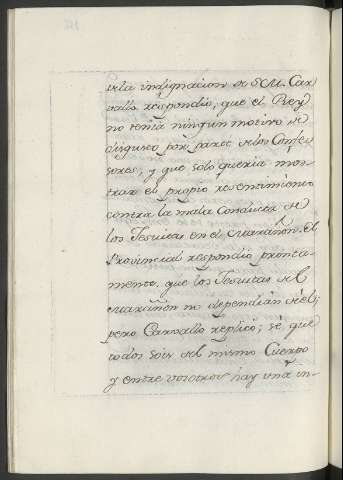 de la indignacion de S.M. Car
vallo respondió, que el Rey
no tenia ningun motivo de
disgusto por parte de los Confe-
sores, y que sólo queria mos-
trar el propio resentimiento
contra la mala Conducta de
los Jesuitas en el Marañon. El
Provincial respondió pronta-
mente, que los Jesuitas del
Marañón no dependian de él;
pero Carvallo replicó; sé que
todos sois del mismo Cuerpo
y entre vosotros hay una in-